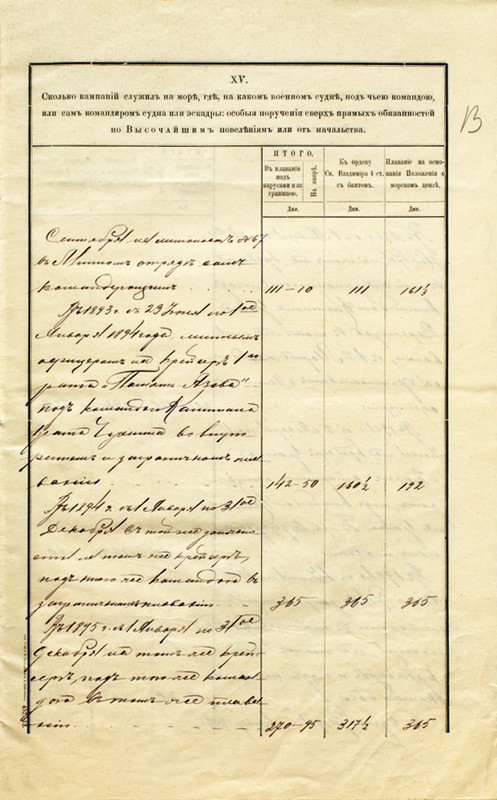 XV.
Сколько кампаній служилъ на морѣ, гдѣ, на какомъ военномъ суднѣ, подъ чьею командою,
или самъ командиромъ судна или эскадры: особыя порученія сверхъ прямыхъ обязанностей
по Высочайшимъ повелѣніямъ или отъ начальства.
В
ИТОГО.
Въ плаваніи
подъ
парусами или за
границею.
На якорѣ.
Къ ордену
Св. Владиміра 4 ст.
съ бантомъ.
Плаваніе на осно-
ваніи Положенія о
морскомъ цензѣ.
Дни.
Дни.
Дни.
Сентября на миноноскѣ №67
въ Минномъ отрядѣ самъ
командующимъ 111-10 111 161½
Въ 1893 г. съ 23 Іюня по 1ое
Января 1894 года миннымъ
офицеромъ на крейсерѣ 1го
ранга „Память Азова"
подъ командою Капитана
1 ранга Чухнина во внут-
реннемъ и заграничномъ пла-
ваніи 142-50 180½ 192
Въ 1894 г. съ 1 Января по 31ое
Декабря въ той же должно-
сти на томъ же крейсерѣ,
подъ тою же командою въ
заграничномъ плаваніи 365 365 365
Въ 1895 г. съ 1 Января по 31ое
Декабря на томъ же крей-
серѣ, подъ тою же коман-
дою въ томъ же плава-
ніи 270-95 317½ 365